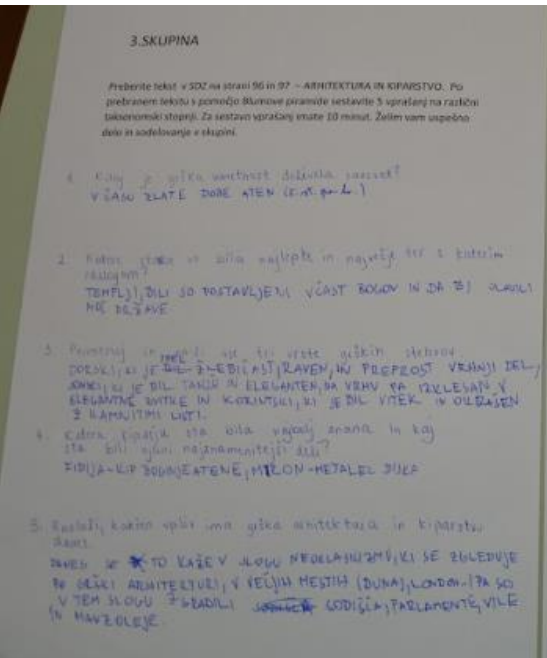 3.SKUPINA
Preberite tekst v SDZ na strani 96 in 97 – ARHITEKTURA IN KIPARSTVO. Po
prebranem tekstu s pomočjo Blumove piramide sestavite 5 vprašanj na različni
taksonomski stopnji. Za sestavo vprašanj imate 10 minut. Želim vam uspešno
delo in sodelovanje v skupini.
1. Kdaj je grška umetnost doživela
V ČASU ZLATE DOBE ATEN
2. Katere so bile najlepše in največje ter s katerim
razlogom?
TEMPLJI, BILI SO POSTAVLJENI V ČAST BOGOV IN DA BI SLAVILI
DRŽAVE
3. in vse tri vrste grških stebrov
DORSKI, KI JE IMEL ŽLEBIČAST, RAVEN, IN PREPROST VRHNJI DEL,
JONSKI, KI JE BIL TANJŠI IN ELEGANTEN, NA VRHU PA IZKLESAN V
ELEGANTNE IN KORINTSKI, KI JE BIL VITEK IN OKRAŠEN
Z KAMNITIMI LISTI.
4. Katera kiparja sta bila najbolj znana in kaj
sta bili njuni najznamenitejši deli?
FIDIJA-KIP BOGINJE ATENE, MIRON-METALEC DISKA
5. Razloži, kakšen vpliv ima grška arhitektura in kiparstvo
danes.
DANES SE TO KAŽE V SLOGU NEOKLASICIZMU, KI SE ZGLEDUJE
PO GRŠKI ARHITEKTURI, V VEČJIH MESTIH (DUNAJ, LONDON...) PA SO
V TEM SLOGU ZGRADILI SODIŠČA, PARLAMENTE, VILE
IN MAVZOLEJE.